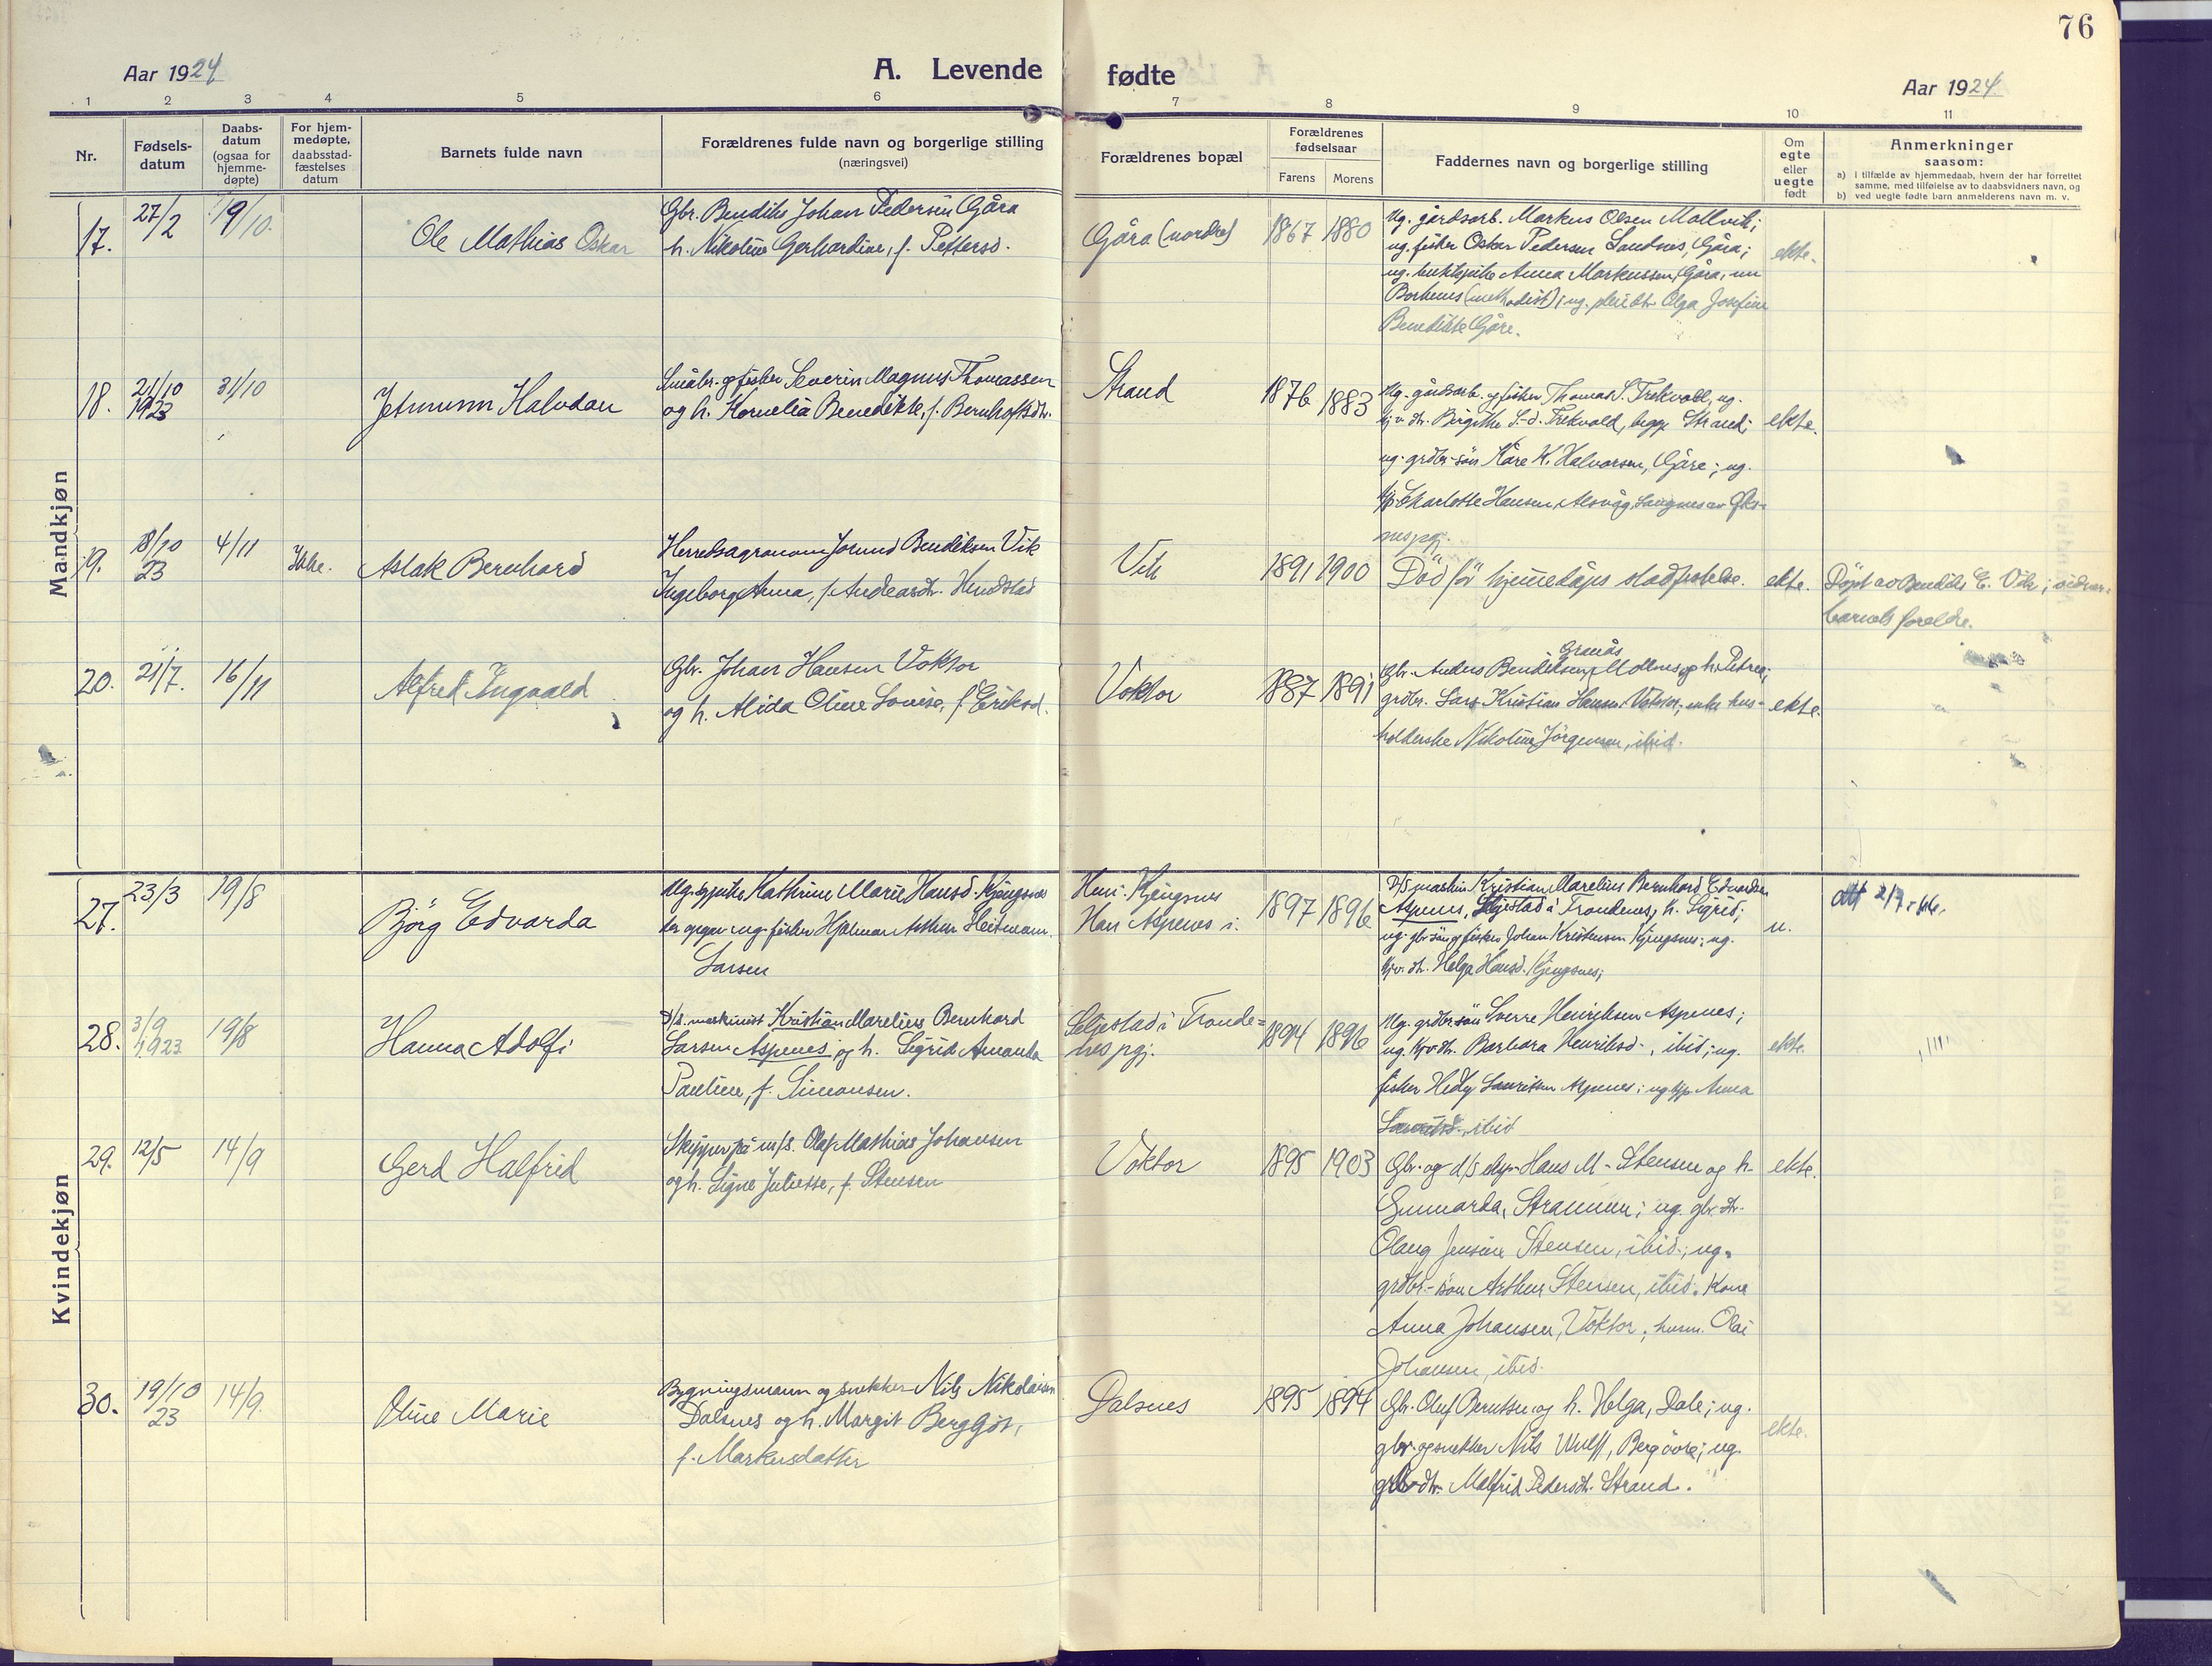 76
Aar 1924
A. Levende fødte
Aar 1924
1 2 3 4 5 6 7 8 9 10 11
Nr.
Fødsels-
datum
Daabs-
datum
(ogsaa for
hjemme-
døpte)
For hjem-
medøpte,
daabsstad-
fæstelses
datum
Barnets fulde navn
Forældrenes fulde navn og borgerlige stilling
(næringsvei)
Forældrenes bopæl
Forældrenes
fødselsaar
Farens Morens
Faddernes navn og borgerlige stilling
Om
egte
eller
uegte
født
Anmerkninger
saasom:
a) i tilfælde av hjemmedaab, hvem der har forrettet
samme, med tilføielse av to daabsvidners navn, og
b) ved uegte fødte barn anmelderens navn m. v.
Mandkjøn
17. 27/2 19/10. Ole Mathias Oskar
Gbr. Bendiks Johan Pedersen Gåra
h. Nikoline Gerhardine, f. Pettersd.
Gåra (nordre) 1867 1880
Ug. gårdsarb. Markus Olsen Mollvik;
ug. fisker Oskar Pedersen Sandnes, Gåra;
ug. Anna Markussen, Gåra,
Borkenes (methodist); ug. Olga Josefine
Benedikte Gåre.
ekte.
18. 21/10 1923 31/10 Jetmunn Halvdan
Småbr. og fisker Severin Magnus Thomassen
og h. Kornelia Benedikte, f. Bernhoftsdtr.
Strand 1876 1883
Ug. gårdsarb. og fisker Thomas S. Trekvold, ug.
dtr. Birgithe S.-d. Trekvold, begge Strand;
ug. grdbr-søn Kåre K. Halvorsen, Gåre; ug.
Charlotte Hansen, Alsvåg, Langnes av Øks-
nes pgj.
ekte.
19. 18/10 23 4/11 Ikke. Aslak Bernhard
Herredsagronom Jorund Bendiksen Vik
Ingeborg Anna, f. Andeasdtr. Hundstad
Vik 1891 1900
Död för hjemmedåps stadfestelse.
ekte.
Döpt av Bendiks E. Vik;
barnets foreldre.
20. 21/7. 16/11 Alfred Ingvald
Gbr. Johan Hansen Voktor
og h. Alida Oline Lovise, f. Eriksd.
Voktor 1887 1891
Grønås
Gbr. Anders Bendiksen, Mollnes og h. Petrea;
grdbr. Lars Kristian Hansen, Voktor; enke hus-
holderske Nikoline Jörgensen, ibid.
ekte.
Kvindekjøn
27. 23/3 19/8 Bjørg Edvarda
Ug. sypike Kathrine Marie Hansd. Kjengsnes
der opgav ug. fisker Hjalmar Arthur Heitmann
Larsen
Hun: Kjengsnes
Han Aspenes i. 1897 1896
D/S maskin. Kristian Marelius Bernhard Edvardsen
Aspenes, Seljestad i Trondenes, h. Sigrid;
ug. gbr søn og fisker Johan Kristensen Kjengsnes; ug.
kjv. dtr. Helga Hansd. Kjengsnes;
u.
28. 3/9 1923 19/8 Hanna Adolfi
D/s. maskinist Kristian Marelius Bernhard
Larsen Aspenes og h. Sigrid Amanda
Pauline, f. Simonsen.
Seljestad i Tronde-
nes pgj. 1894 1896
Ug. grdbr søn Sverre Henriksen Aspenes;
ug. kjv. dtr. Barbara Henriksd., ibid; ug.
fisker Hedly Lauritsen Aspenes; ug. Anna
Lauritsd. ibid
ekte.
29. 12/5 14/9 Gerd Halfrid
Skipper på m/s. Olaf Mathias Johansen
og h. Signe Juliesse, f. Stensen
Voktor 1895 1903
Gbr. og d/s Hans M. Stensen og h.
Gunnarda, Straumen; ug. gbr. dtr.
Olaug Jensine Stensen, ibid.; ug.
grdbr.-søn Arthur Stensen, ibid. Kone
Anna Johansen, Voktor; husm. Olai
Johansen, ibid.
ekte.
30. 19/10 23 14/9. Oline Marie
Bygningsmann og snekker Nils Nikolaisen
Dalsnes og h. Margit Berggöt,
f. Markusdatter
Dalsnes 1895 1894
Gbr. Oluf Berntsen og h. Helga, Dale; ug.
gbr. og snekker Nils Wulff, Berg övre; ug.
grbr dtr. Malfrid Pedersdtr. Strand.
ekte.